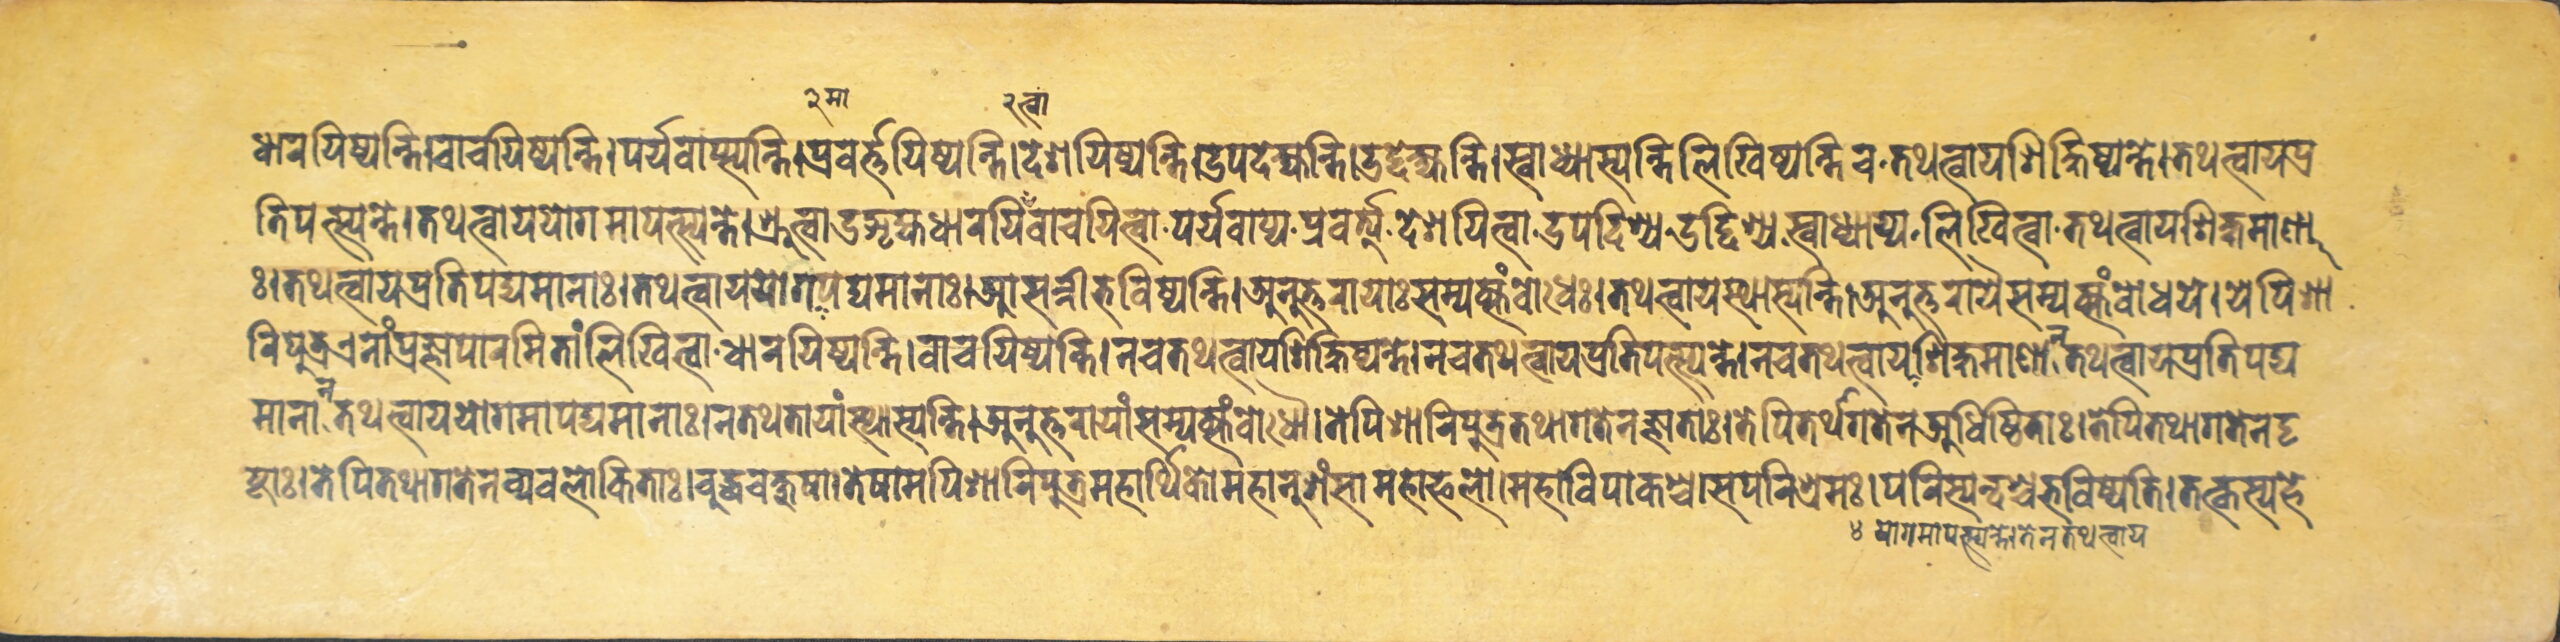 २ मा २ त्वा
धारयिष्यन्ति।वाचयिष्यन्ति।पर्यवाप्स्यन्ति।प्रवर्त्तयिष्यन्ति।देशयिष्यन्ति।उपदेक्ष्यन्ति।उद्देक्ष्यन्ति।स्वाध्यास्यन्तिलिखिष्यन्तिच·तथत्वायशिक्षिष्यन्ते।तथत्वायप्र
तिपत्स्यन्ते।तथत्वाययोगमापत्स्यन्ते।श्रुत्वाउद्गृह्यधारयिवाचयित्वा·पर्यवाप्य·प्रवर्त्य·देशयित्वा·उपदिश्य·उद्दिश्य·स्वाध्याय्य·लिखित्वा·तथत्वायशिक्षमाणा
ः।तथत्वायप्रतिपद्यमानाः।तथत्वाययोगपद्यमानाः।आसन्नीभविष्यन्ति।अनुत्तरायाःसम्यक्संबोधेः।तथत्वायस्थास्यन्ति।अनुत्तरायैसम्यक्संबोधये।येपिशा
रिपुत्रएनांप्रज्ञापारमितांलिखित्वा·धारयिष्यन्ति।वाचयिष्यन्ति।नचतथत्वायशिक्षिष्यन्ते।नचतथत्वायप्रतिपत्स्यन्ते।नचतथत्वायशिक्षमाणानतथत्वायप्रतिपद्य
मानानतथत्वाययोगमापद्यमानाः।नतथतायांस्थास्यन्ति।अनुत्तरायांसम्यक्संबोधौ।तेपिशारिपुत्रतथागतेनज्ञाताः।तेपितथागतेनअधिष्ठिताः।तेपितथागतेनदृ
ष्टाः।तेपितथागतेनव्यवलोकिताः।बुद्धचक्षुषा।तेषामपिशारिपुत्रमहार्थिकोमहानुशंसामहाफलो।महाविपाकश्च।सपरिश्रमः।परिस्पन्दश्चभविष्यति।तत्कस्यहे
४ योगमापत्स्यन्ते।तेनतथत्वाय